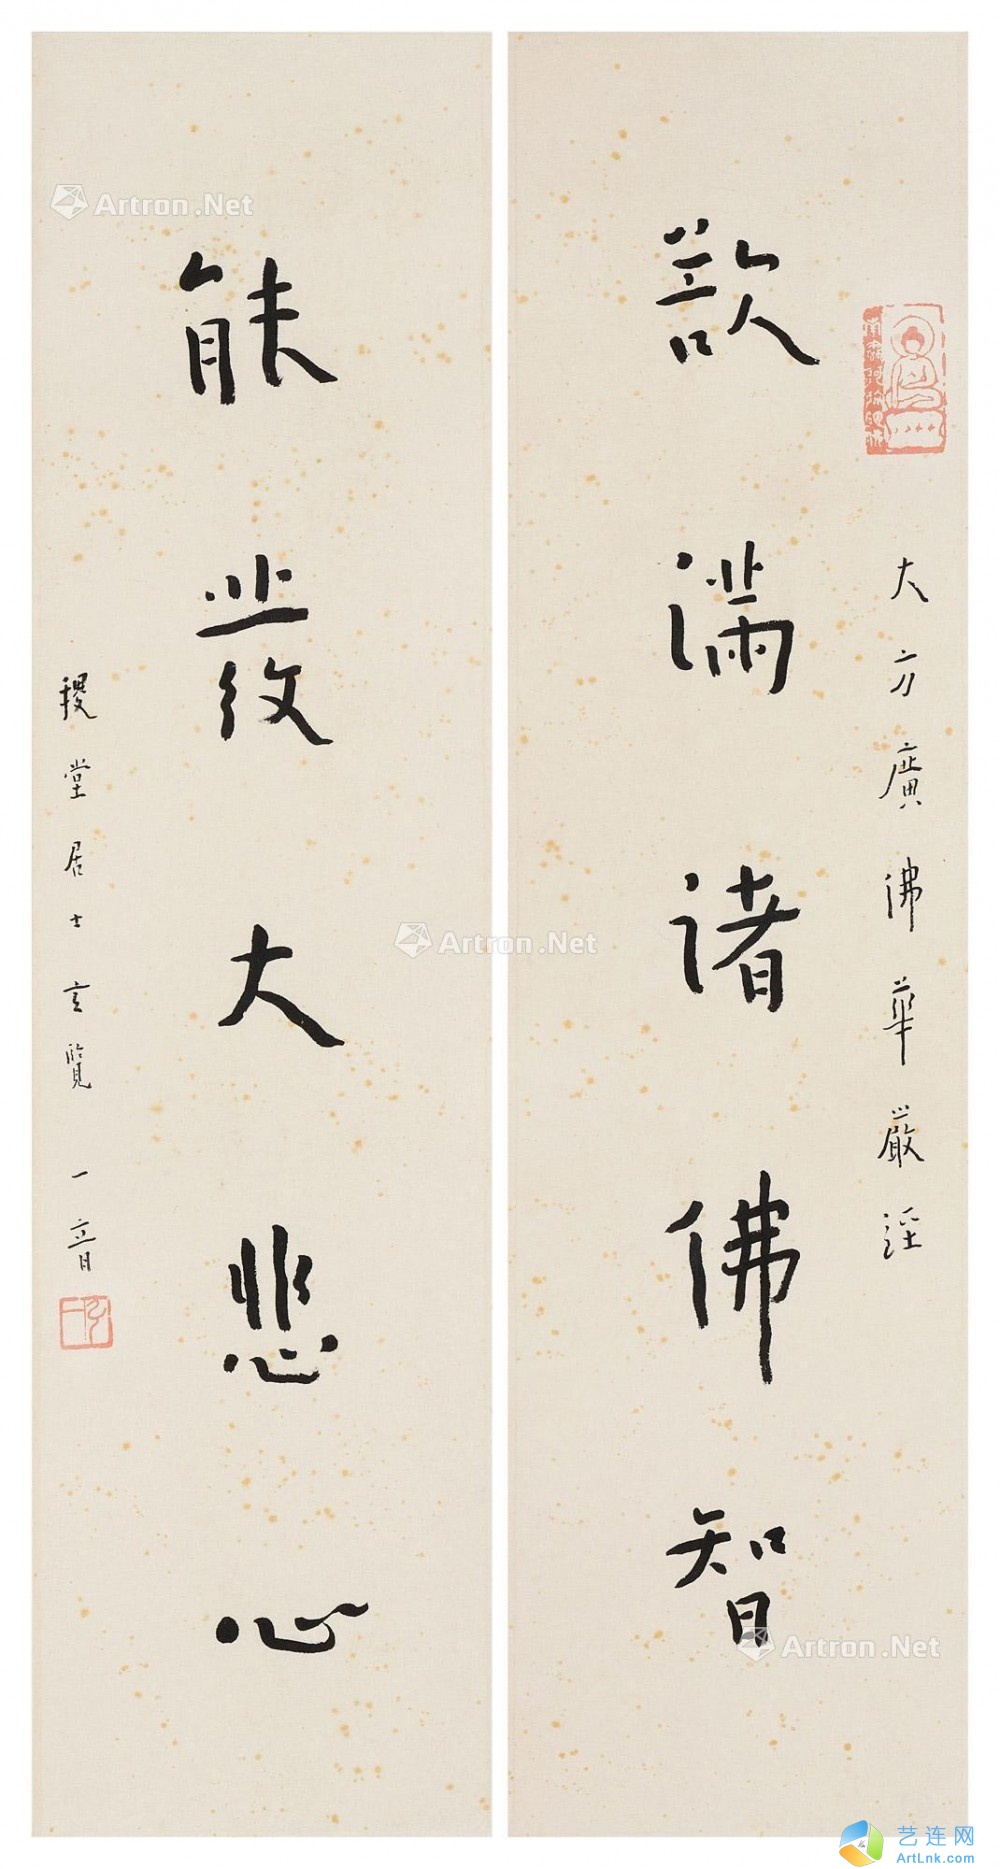 大方廣佛華嚴經
欲滿諸佛智
能發大悲心
稷堂居士玄覽 一音
南無阿彌陀佛
弘一
Artron.Net
Artron.Net
Artron.Net
艺连网
ArtLnk.com